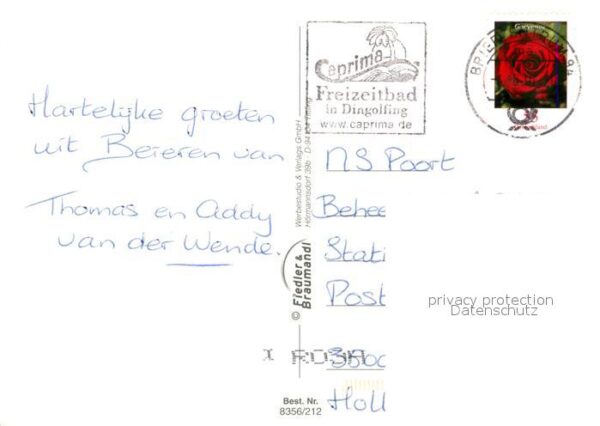 Hartelijke groeten
uit Beieren van
Thomas en Addy
van der Wende.
Caprima
Freizeitbad
in Dingolfing
www.caprima.de
NS Poort
Behee
Stati
Post
Holl
privacy protection
Datenschutz
Werbestudio & Verlags GmbH
© Fiedler & Braumandl
Best. Nr.
8356/212